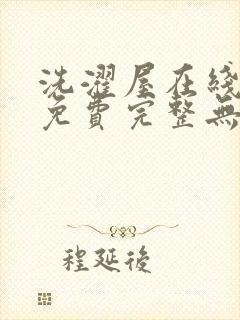 洗濯屋在綫
免費完整無
程延後